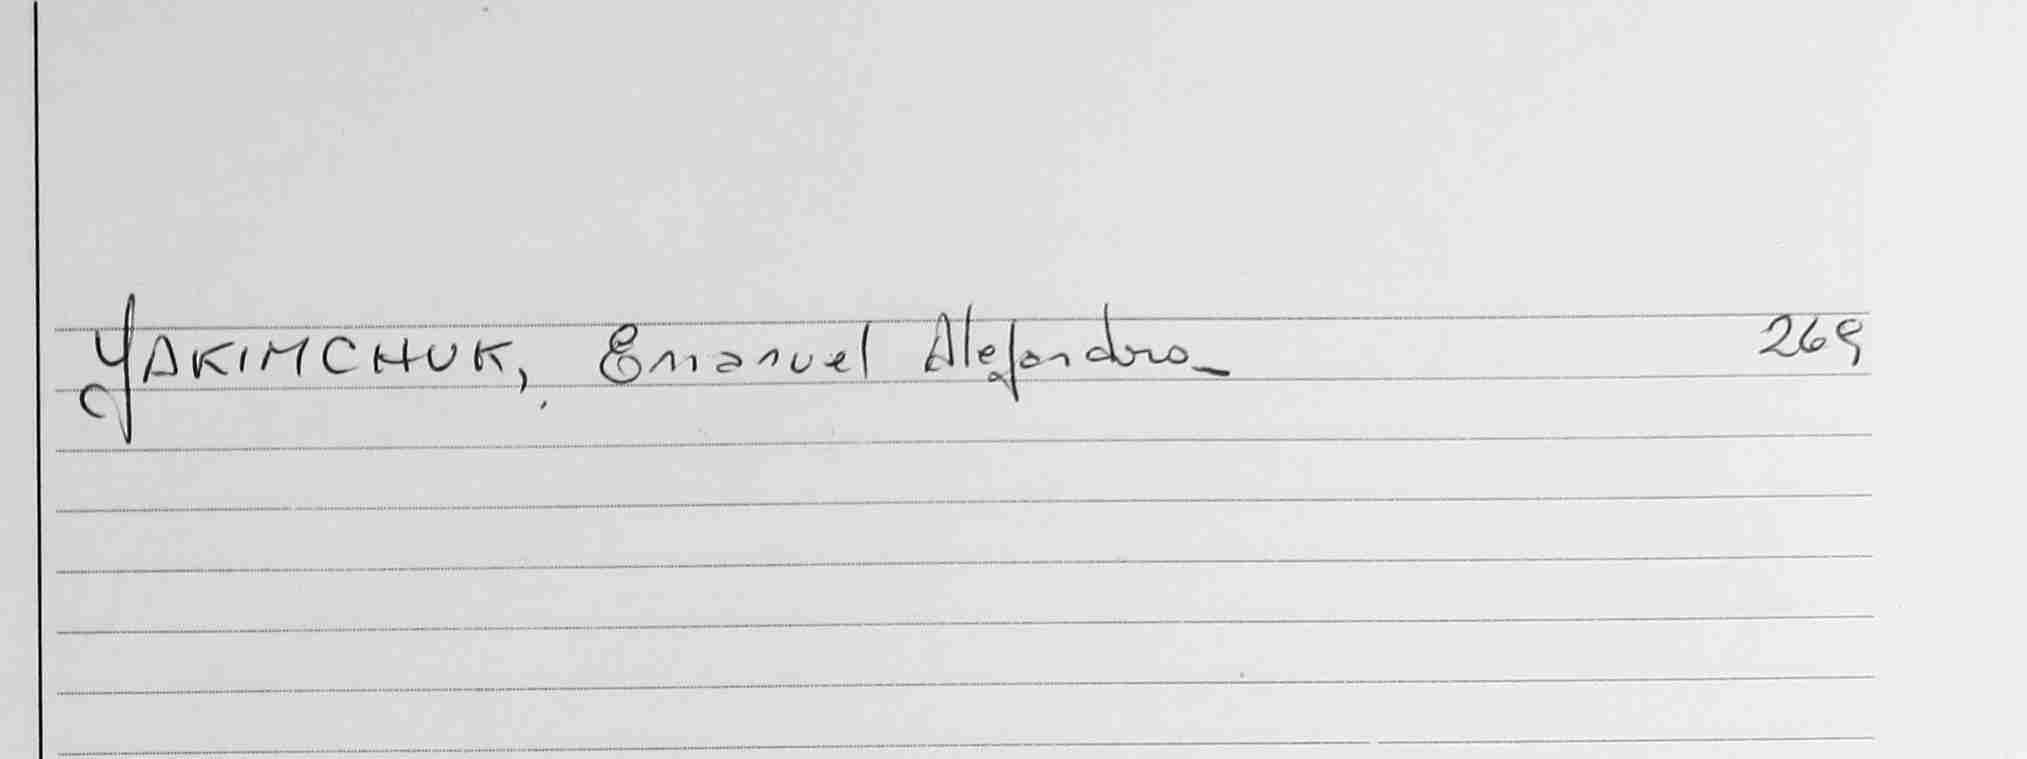 YAKIMCHUK, Emanuel Alejandro_ 269